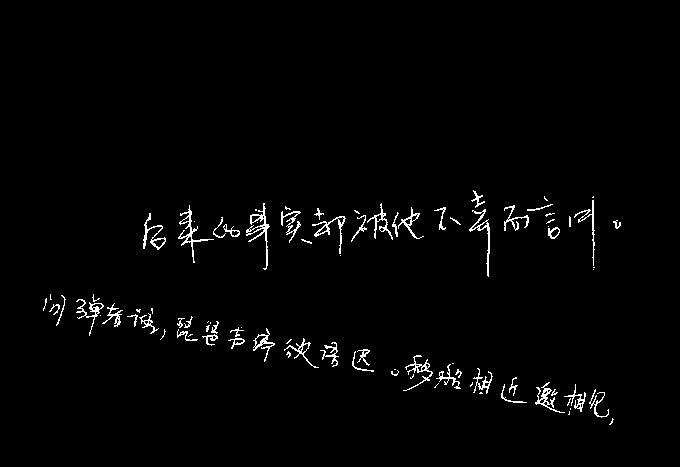 后来的事实却被他不幸而言中。
问弹者谁，琵琶声停欲语迟。移船相近邀相见，